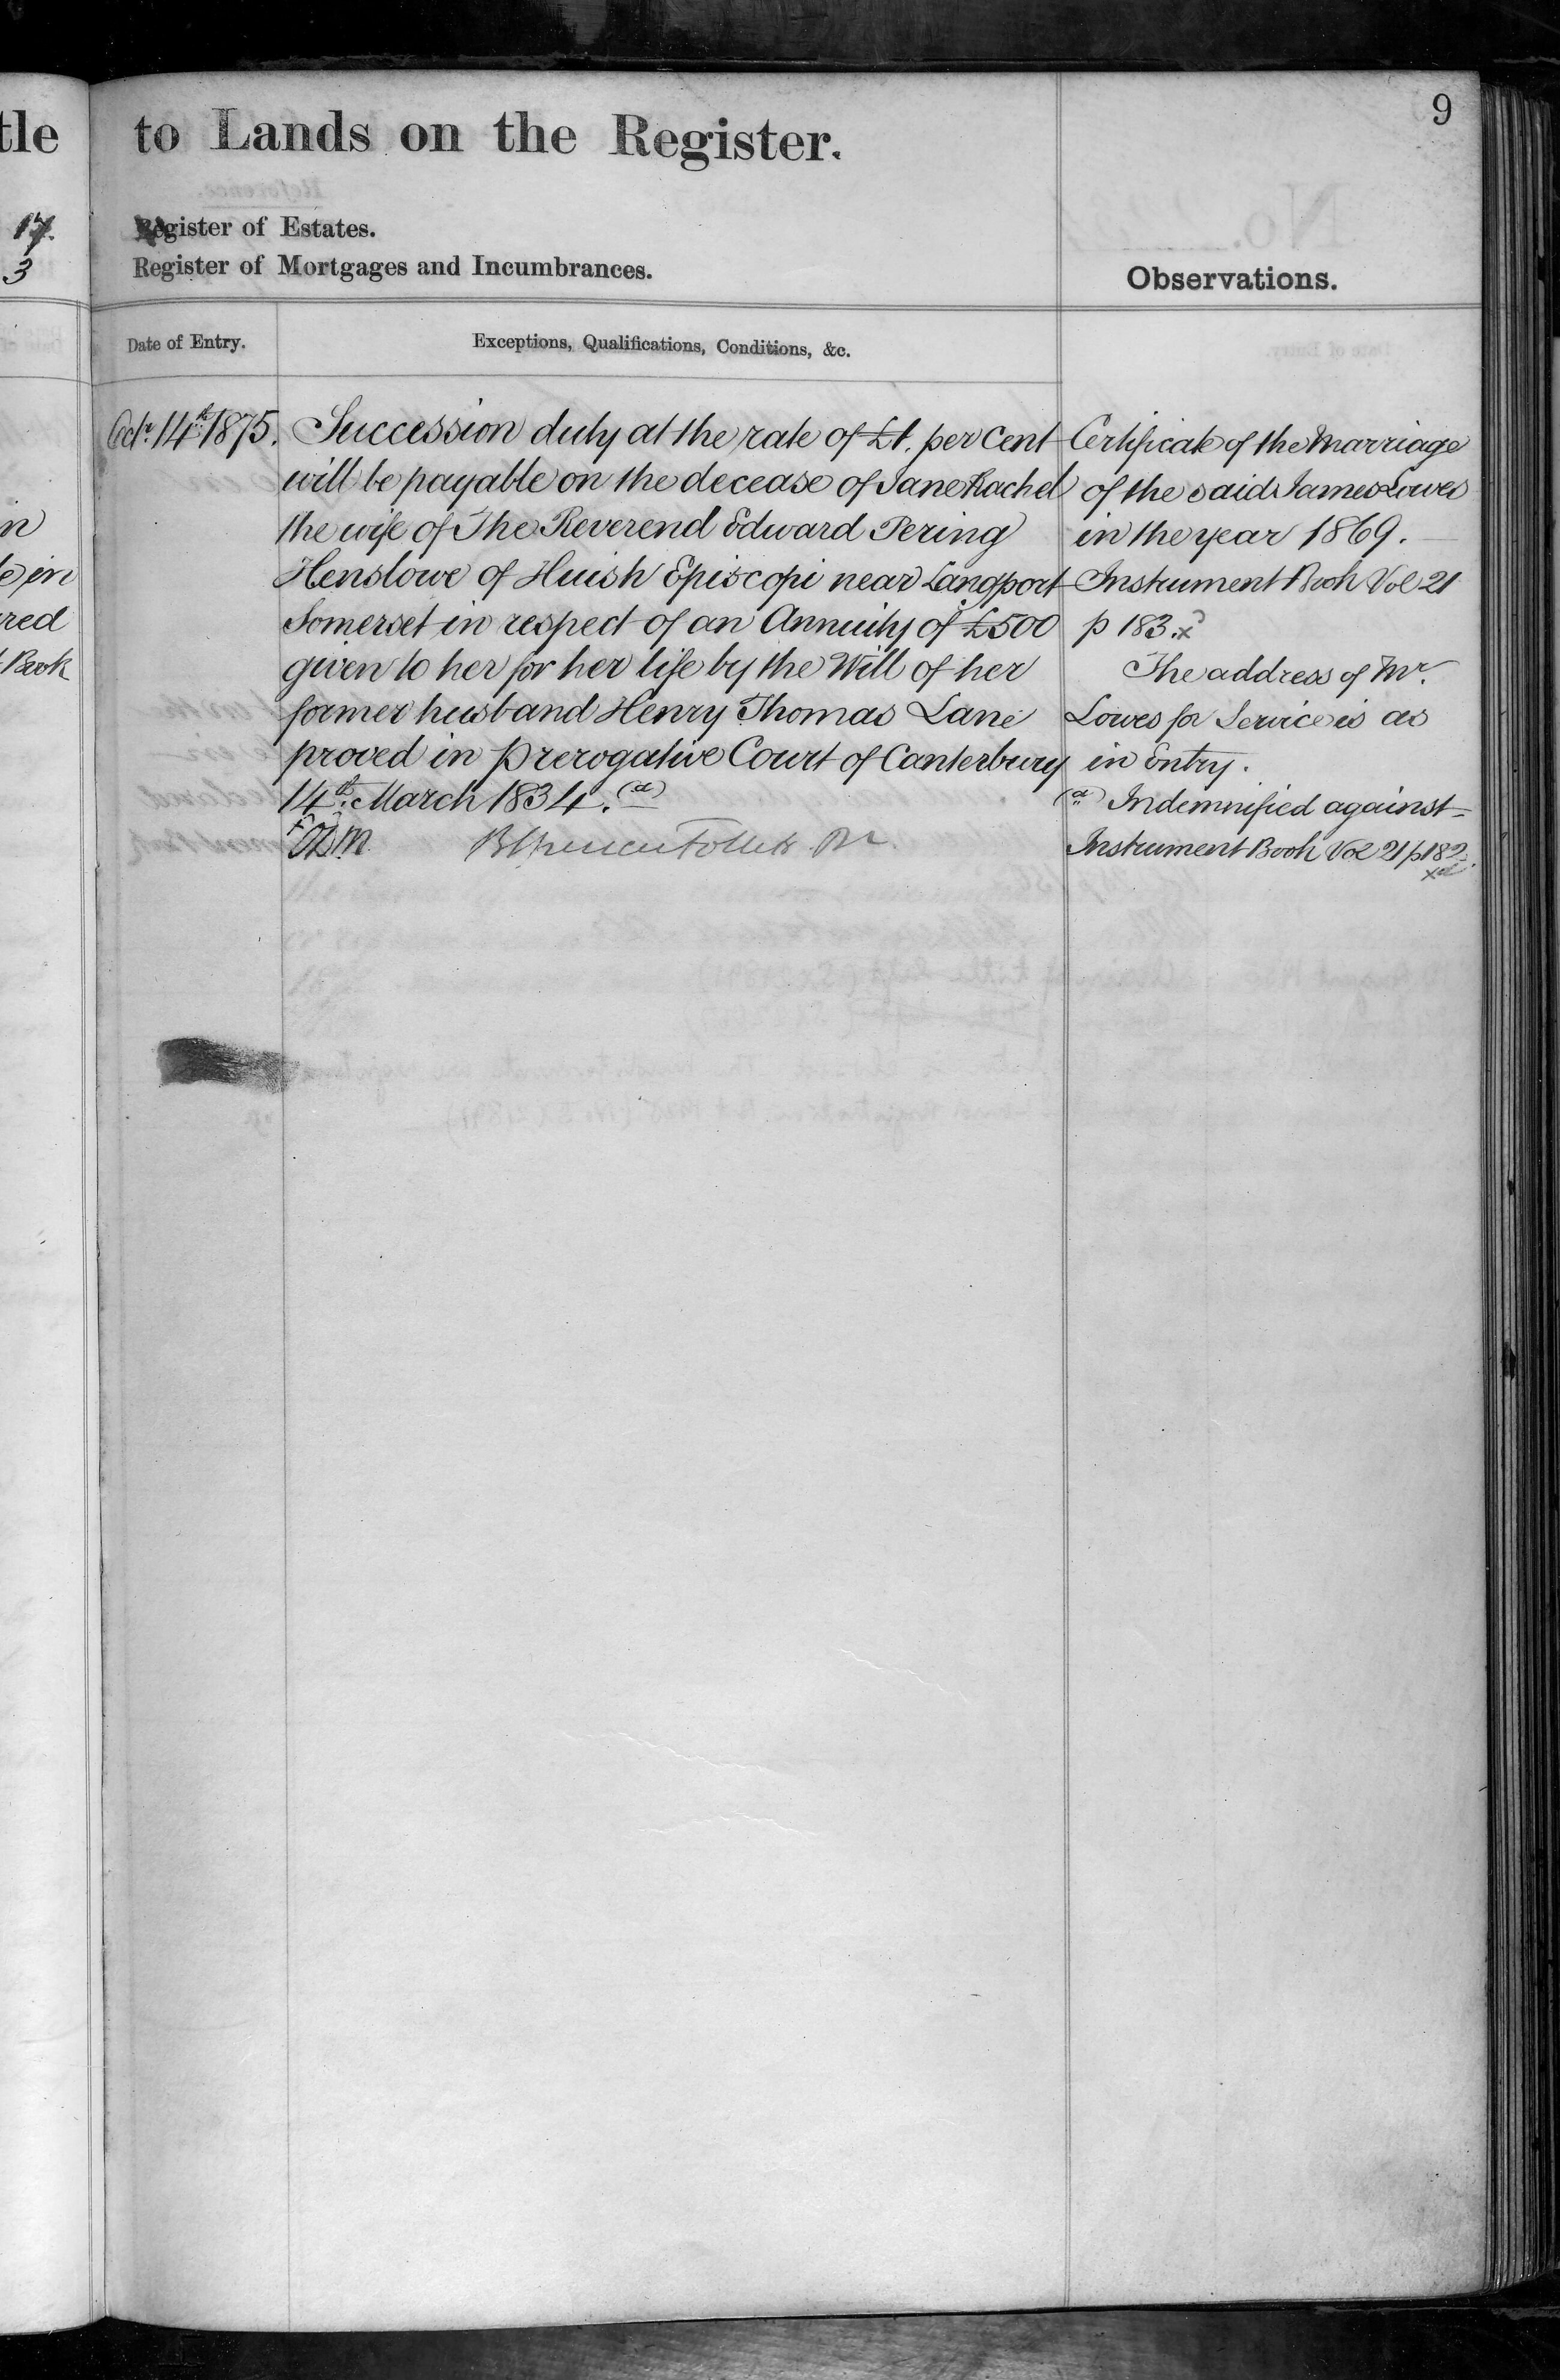 9
tle to Lands on the Register.
17.
Register of Estates.
3
Register of Mortgages and Incumbrances.
Observations.
Date of Entry.
Exceptions, Qualifications, Conditions, &c.
Octr. 14th 1875.
Succession duty at the rate of £1. per Cent
will be payable on the decease of Jane Rachel
the wife of The Reverend Edward Pering
Henslowe of Huish Episcopi near Langport
Somerset in respect of an Annuity of £500
given to her for her life by the Will of her
former husband Henry Thomas Lane
proved in Prerogative Court of Canterbury
14th March 1834. (a)
Certificate of the Marriage
of the said James Lowes
in the year 1869.
Instrument Book Vol 21
p 183.x
The address of Mr.
Lowes for Service is as
in Entry.
(a) Indemnified against
Instrument Book Vol 21 p 182.
n
e in
red
Book